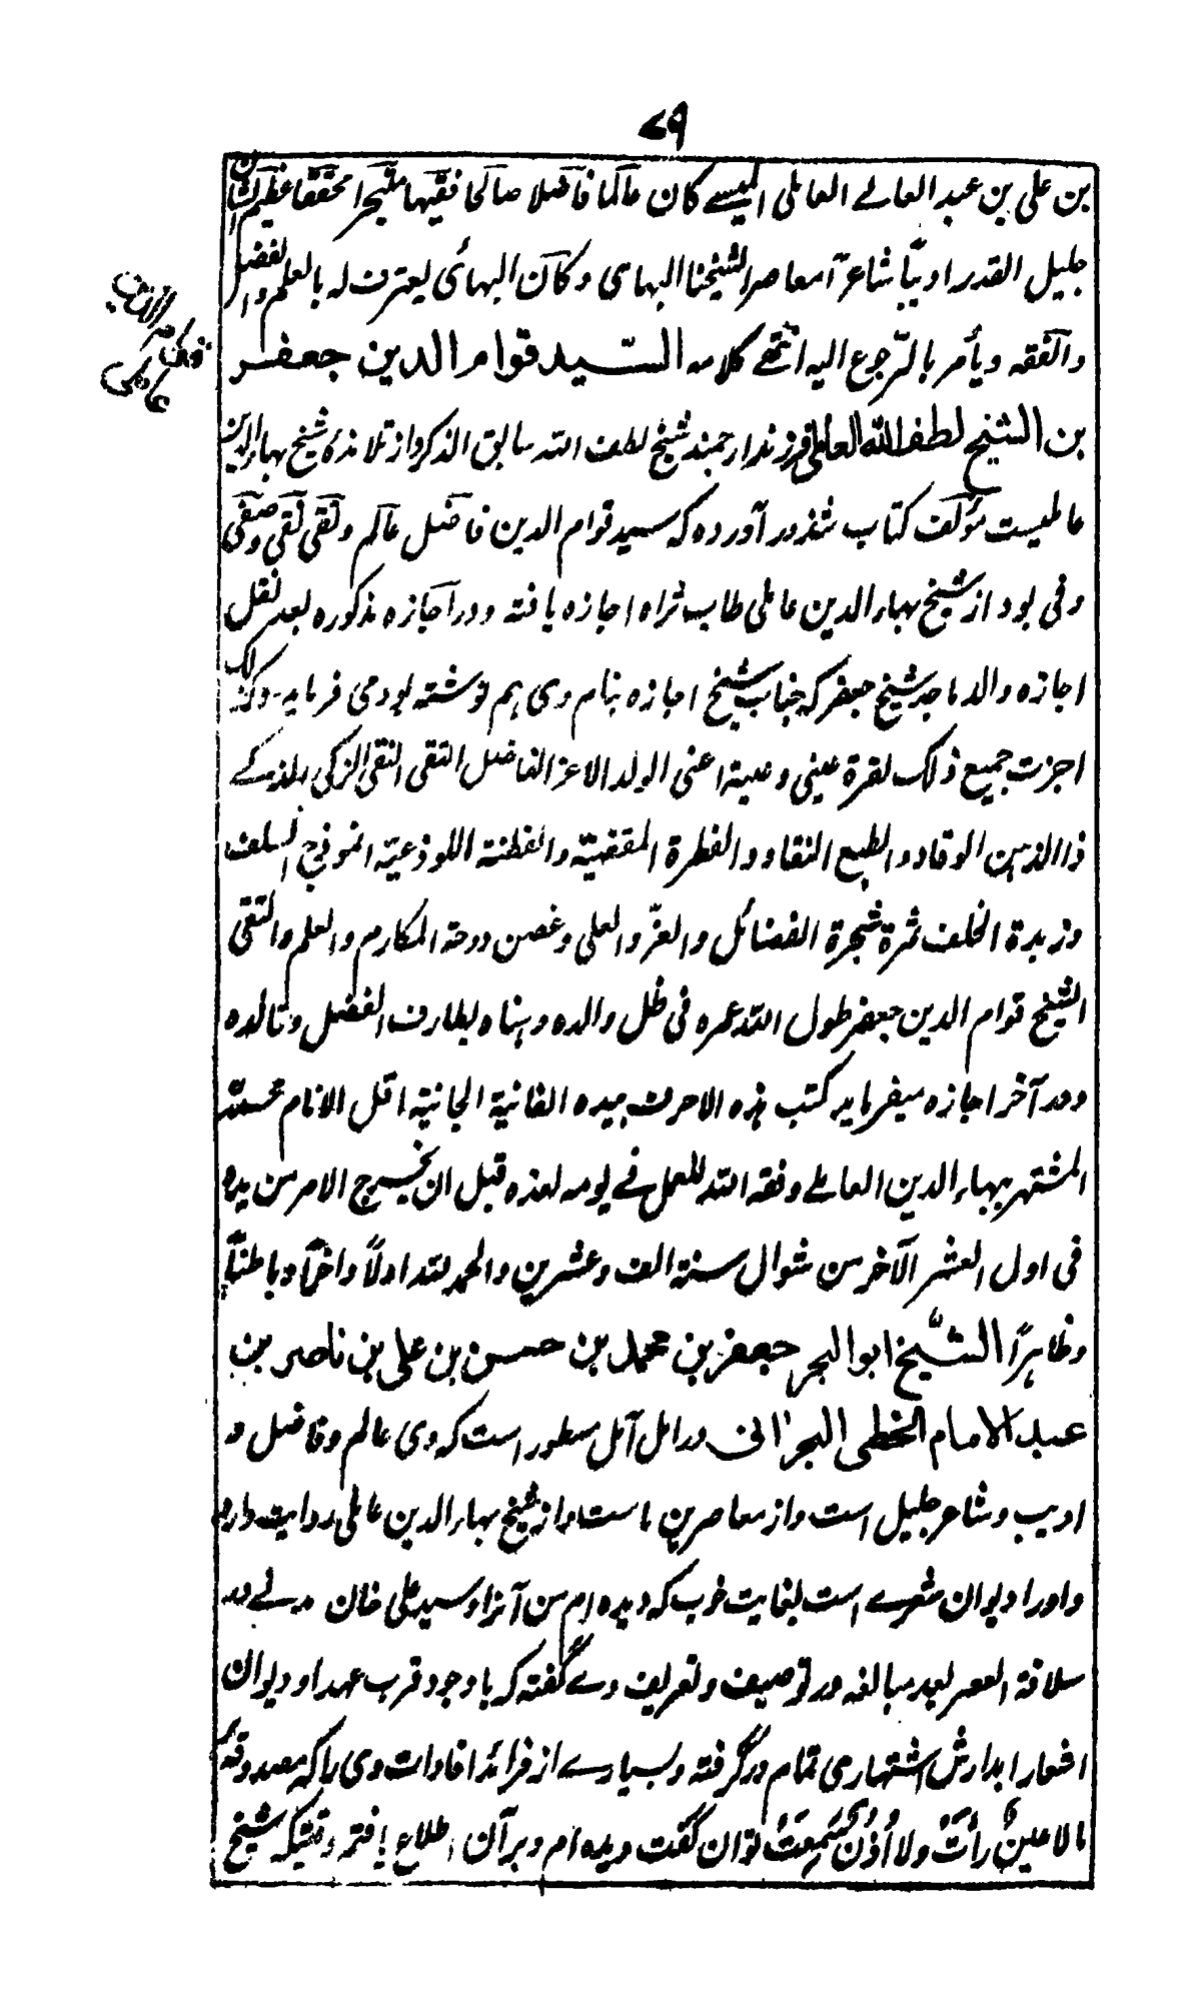 ۷۹
بن علی بن عبد العالے العاملی المیسے کان عالما فاضلا صالحا فقیها متبحرا محققا عظیم الشان
جلیل القدر ادیبًا شاعرًا معاصرا لشیخنا البهائی و کان البهائی یعترف له بالعلم والفضل
والفقه ویأمر بالرّجوع الیه انتهے کلامه السّید قوام الدین جعفر
قوام الدین
عاملی
بن الشیخ لطف الله العاملی فرزند ارجمند شیخ لطف الله سابق الذکر واز تلامذۀ شیخ بهاءالدین
عاملیست مؤلف کتاب شذور آورده که سید قوام الدین فاضل عالم و تقی نقی و صفی
وفی بود از شیخ بهاء الدین عاملی طاب ثراه اجازه یافته و در اجازه مذکوره بعد نقل
اجازه والد ماجد شیخ جعفر که جناب شیخ اجازه بنام وی هم نوشته بود می فرماید وکذلک
اجزت جمیع ذلک لقرة عینی و عینه اعنی الولد الاعز الفاضل التقی النقی الزکی الذکے
ذا الذهن الوقاد والطبع النقاد والفطرة والفطنة اللوذعیة انموذج السلف
وزبدة الخلف ثمرة شجرة الفضائل والعزّ والعلی وغصن دوحة المکارم والعلم والتقی
الشیخ قوام الدین جعفر طول الله عمره فی ظل والده وهناه بطارف الفضل وتالده
ودر آخر اجازه میفرماید کتب هذه الاحرف بیده الفانیة الجانیة اقل الانام محمد
المشتهر ببهاء الدین العاملے وفقه الله للعمل فے یومه لغده قبل ان یخرج الامر من یده
فی اول العشر الآخر من شوال سنة الف وعشرین والحمد لله اولًا واخرًا وباطنًا
وظاهرًا الشّیخ ابو البحر جعفر بن محمد بن حسن بن علی بن ناصر بن
عبد الامام الخطی البحرانی در امل آمل مسطور است که وی عالم و فاضل و
ادیب و شاعر جلیل است و از معاصرین ما است و از شیخ بهاء الدین عاملی روایت دارد
و او را دیوان شعرے است بغایت خوب که دیده ام من آنرا و سید علی خان مدنے در
سلافة العصر بعد مبالغه در توصیف و تعریف وے گفته که با وجود قرب عهد او دیوان
اشعار ابدارش اشتهار می تمام درگرفته و بسیارے از فرائد افادات وی را که مصدوقۀ
مالا عینٌ رأتْ ولا أذنٌ سَمِعَتْ توان گفت دیده ام و برآن اطلاع یافته وقتیکه شیخ